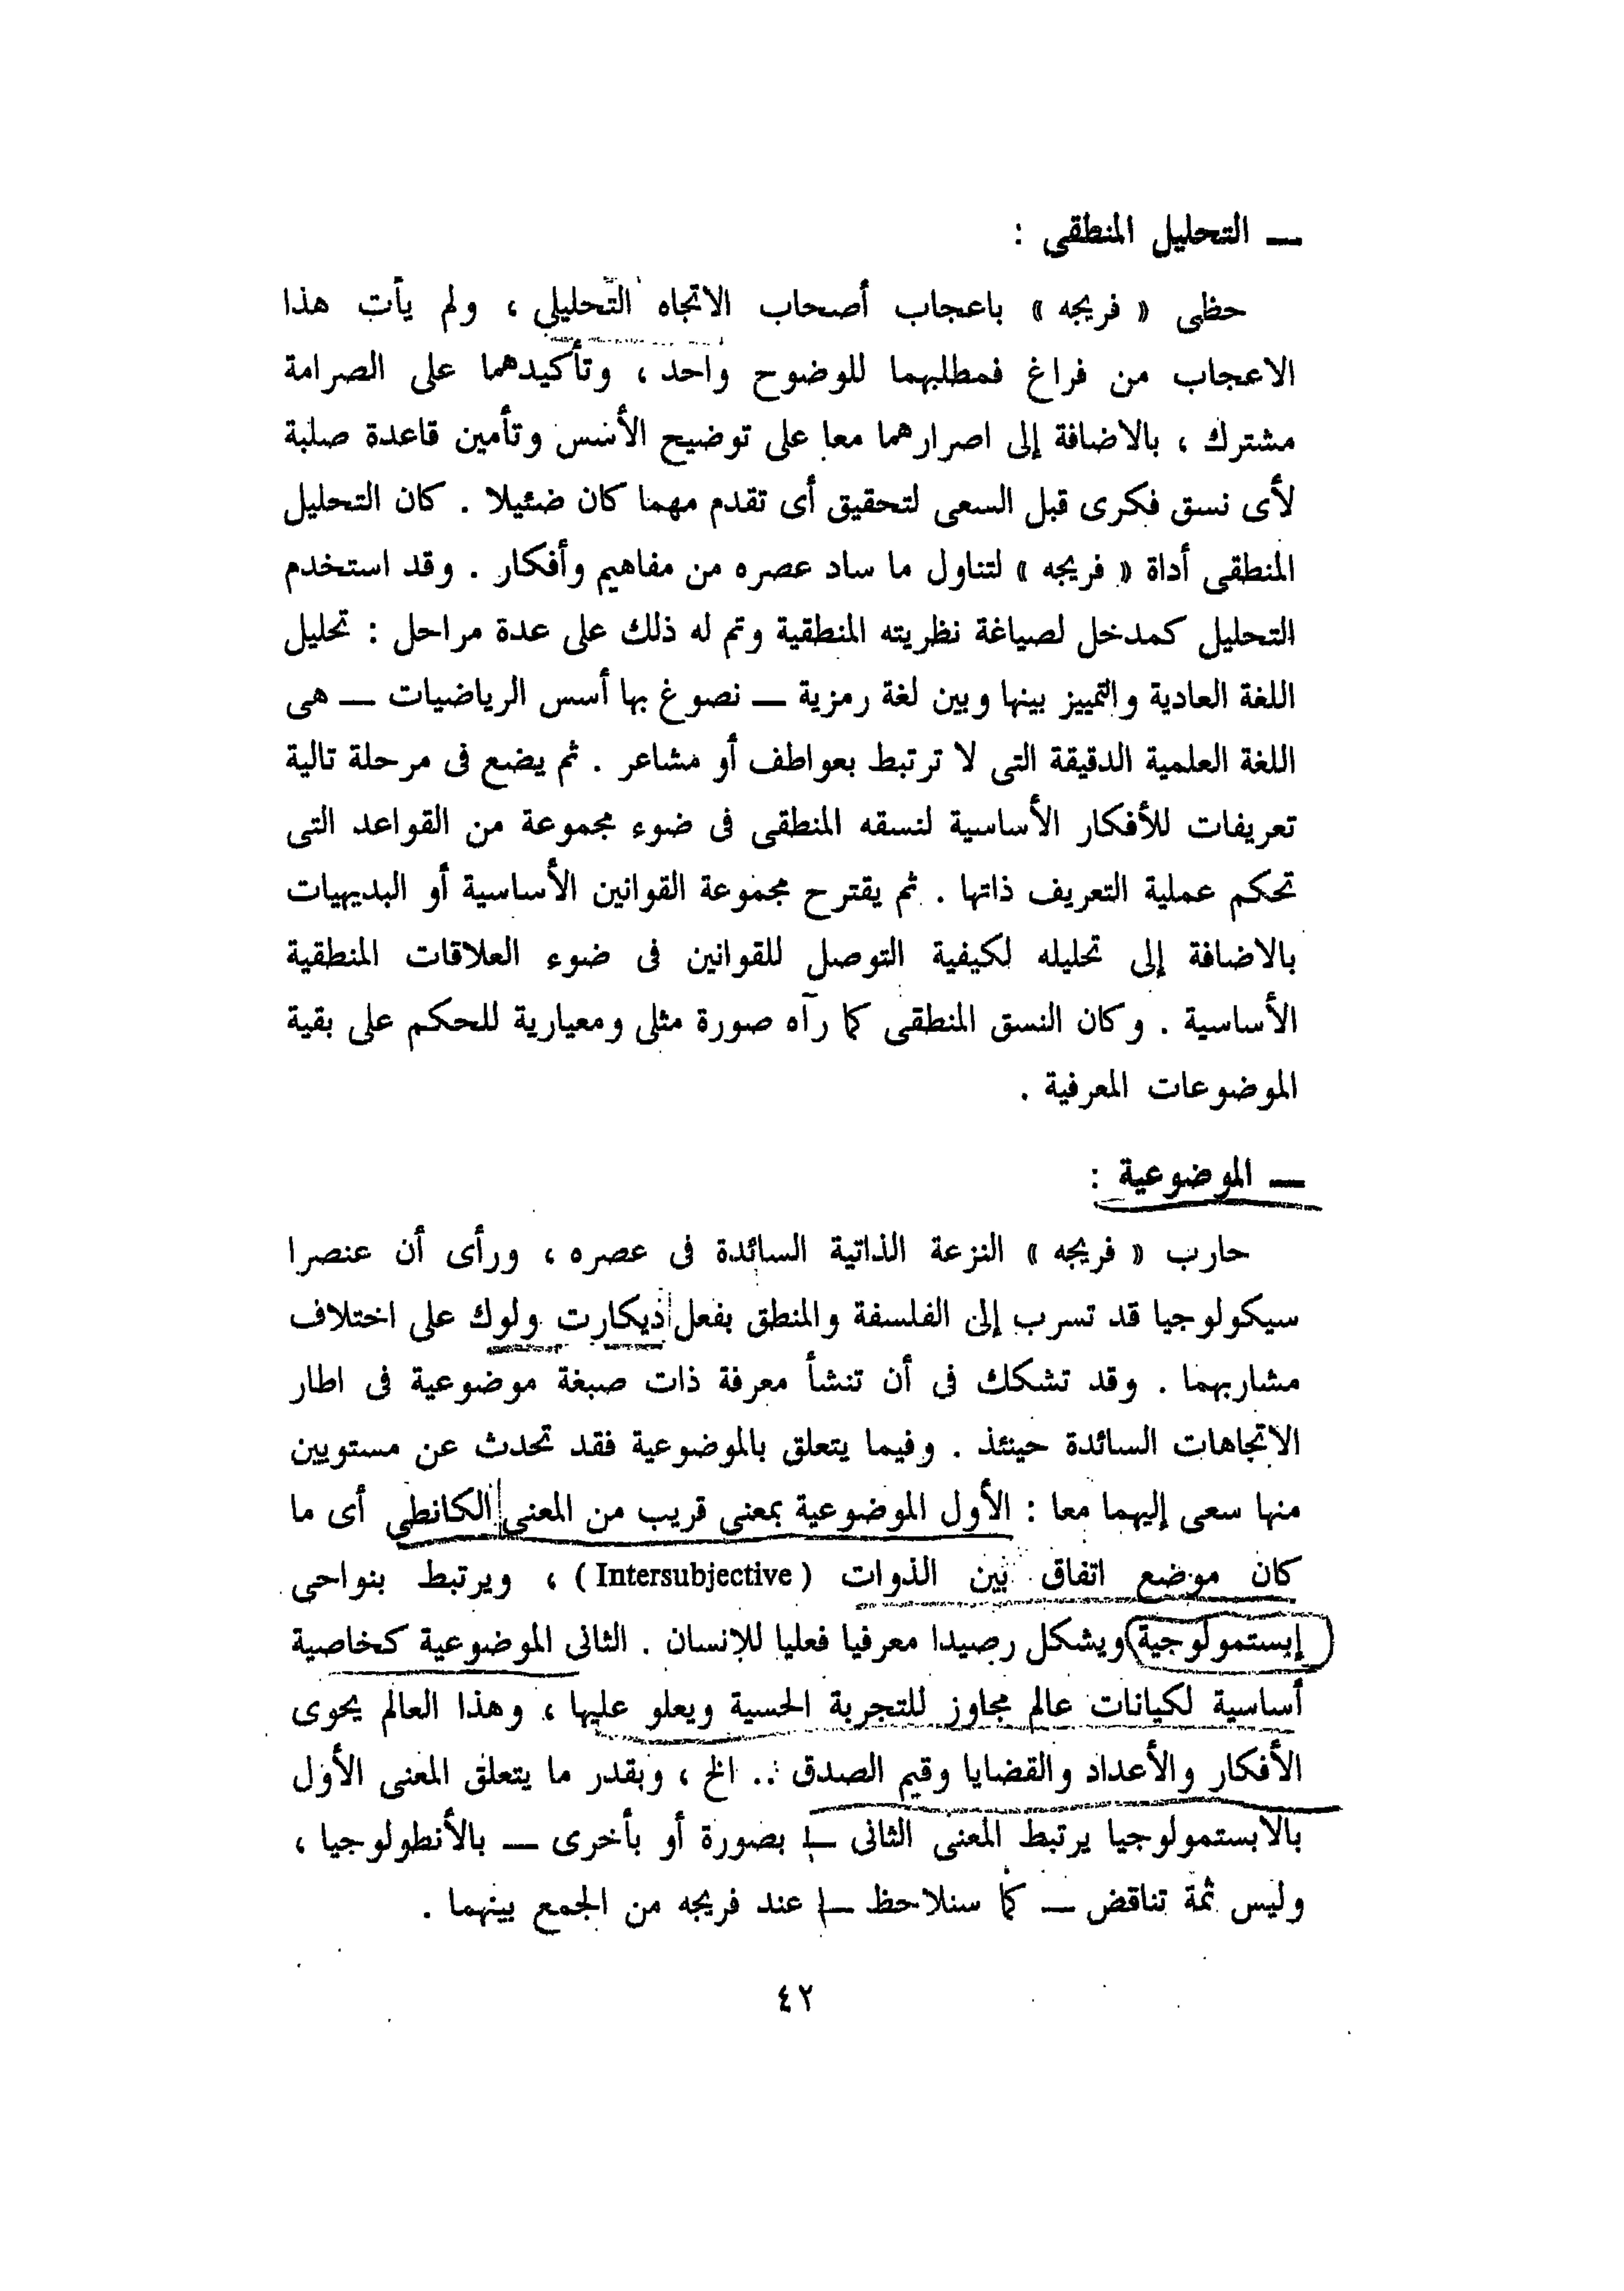 — التحليل المنطقى :
حظى « فريجه » باعجاب أصحاب الاتجاه التحليلي ، ولم يأت هذا
الاعجاب من فراغ فمطلبهما للوضوح واحد ، وتأكيدهما على الصرامة
مشترك ، بالاضافة إلى اصرارهما معا على توضيح الأسس وتأمين قاعدة صلبة
لأى نسق فكرى قبل السعى لتحقيق أى تقدم مهما كان ضئيلا . كان التحليل
المنطقى أداة « فريجه » لتناول ما ساد عصره من مفاهيم وأفكار . وقد استخدم
التحليل كمدخل لصياغة نظريته المنطقية وتم له ذلك على عدة مراحل : تحليل
اللغة العادية والتمييز بينها وبين لغة رمزية — نصوغ بها أسس الرياضيات — هى
اللغة العلمية الدقيقة التى لا ترتبط بعواطف أو مشاعر . ثم يضع فى مرحلة تالية
تعريفات للأفكار الأساسية لنسقه المنطقى فى ضوء مجموعة من القواعد التى
تحكم عملية التعريف ذاتها . ثم يقترح مجموعة القوانين الأساسية أو البديهيات
بالاضافة إلى تحليله لكيفية التوصل للقوانين فى ضوء العلاقات المنطقية
الأساسية . وكان النسق المنطقى كما رآه صورة مثلى ومعيارية للحكم على بقية
الموضوعات المعرفية .
— الموضوعية :
حارب « فريجه » النزعة الذاتية السائدة فى عصره ، ورأى أن عنصرا
سيكولوجيا قد تسرب إلى الفلسفة والمنطق بفعل ديكارت ولوك على اختلاف
مشاربهما . وقد تشكك فى أن تنشأ معرفة ذات صبغة موضوعية فى اطار
الاتجاهات السائدة حينئذ . وفيما يتعلق بالموضوعية فقد تحدث عن مستويين
منها سعى إليهما معا : الأول الموضوعية بمعنى قريب من المعنى الكانطى أى ما
كان موضع اتفاق بين الذوات ( Intersubjective ) ، ويرتبط بنواحى
إبستمولوجية ويشكل رصيدا معرفيا فعليا للإنسان . الثانى الموضوعية كخاصية
أساسية لكيانات عالم مجاوز للتجربة الحسية ويعلو عليها ، وهذا العالم يحوى
الأفكار والأعداد والقضايا وقيم الصدق .. الخ ، وبقدر ما يتعلق المعنى الأول
بالابستمولوجيا يرتبط المعنى الثانى — بصورة أو بأخرى — بالأنطولوجيا ،
وليس ثمة تناقض — كما سنلاحظ — عند فريجه من الجمع بينهما .
٤٢